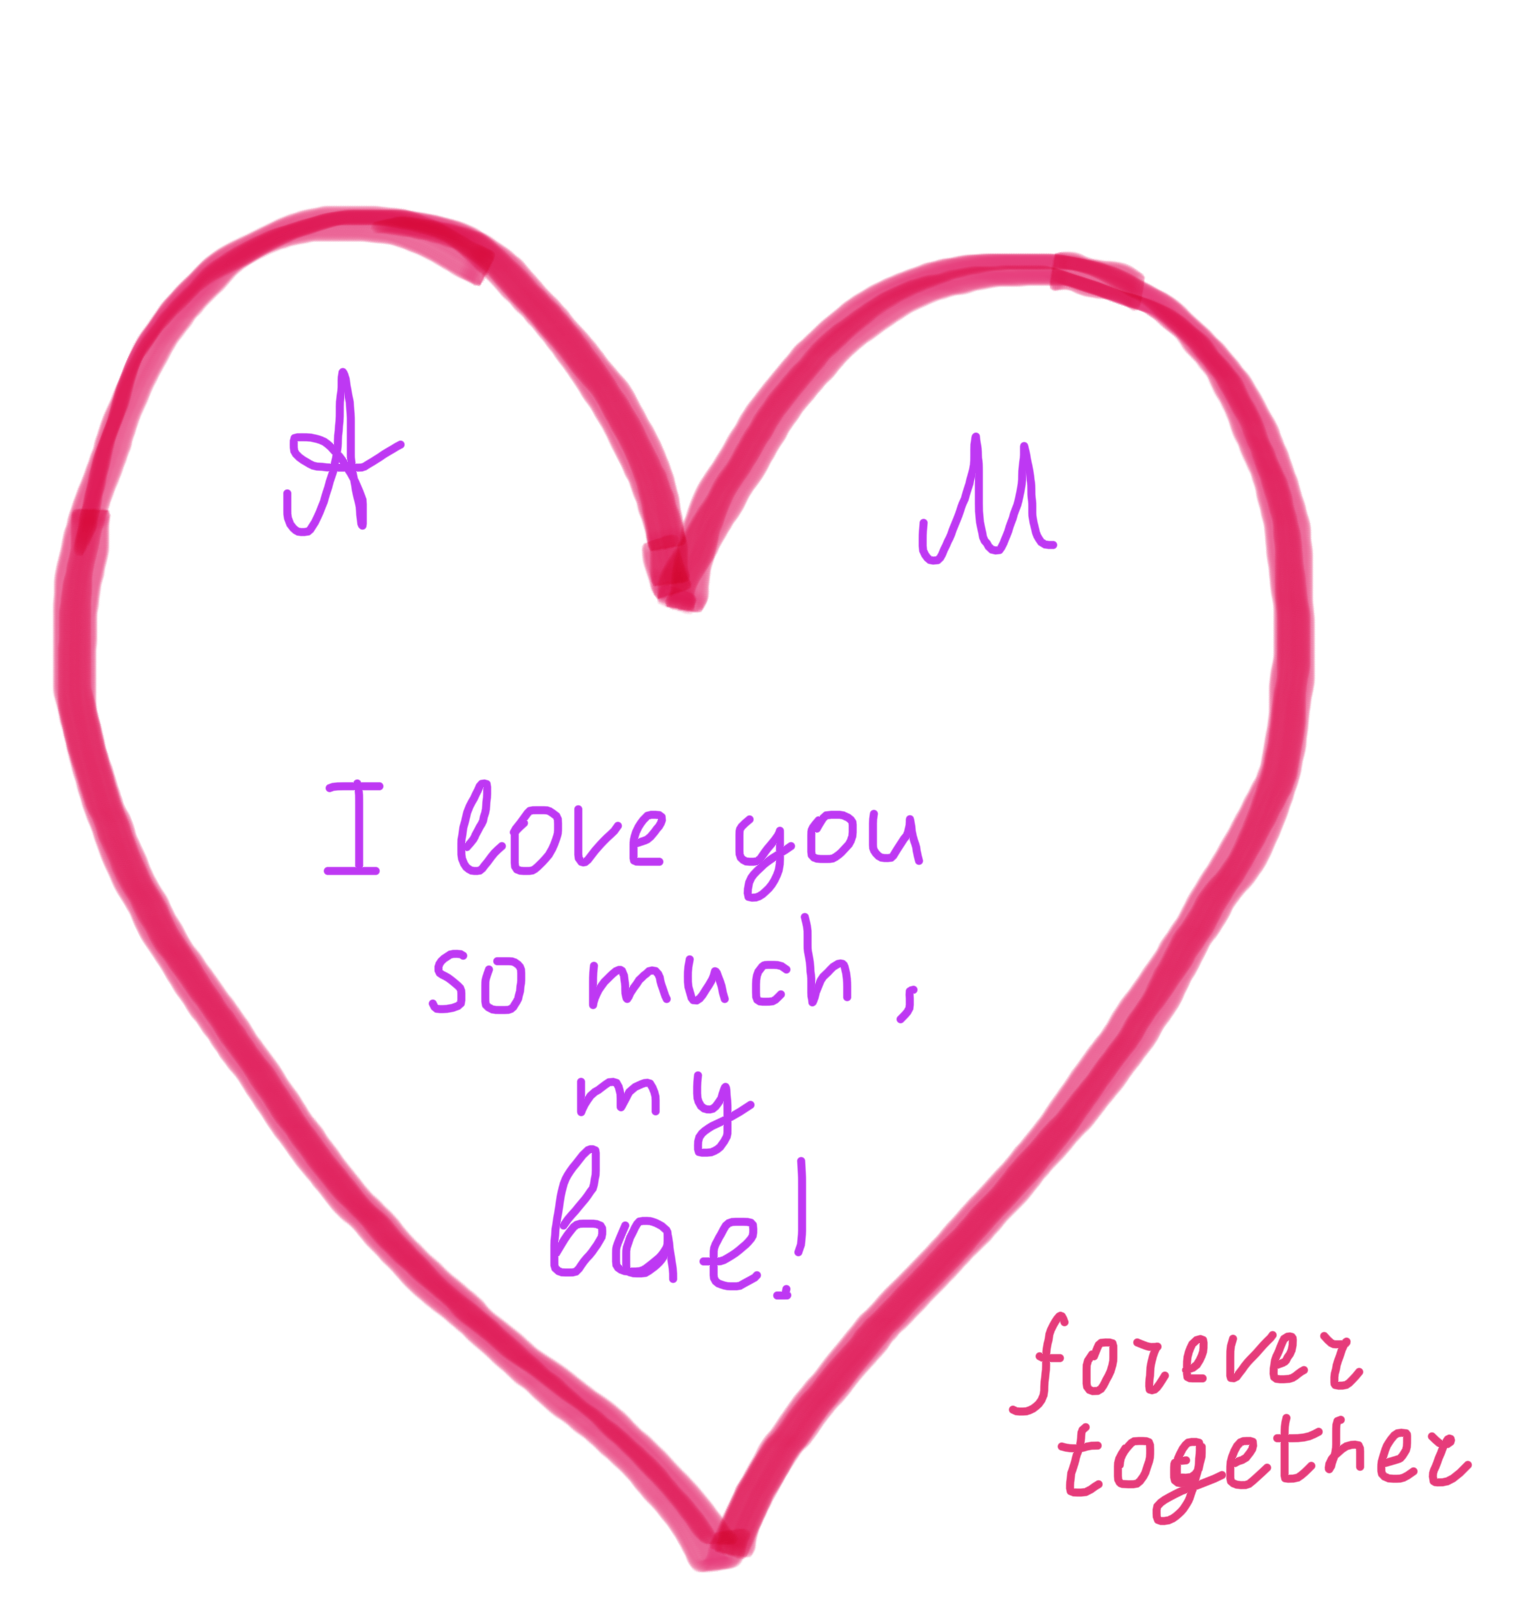 A M
I love you
so much,
my
bae!
forever
together